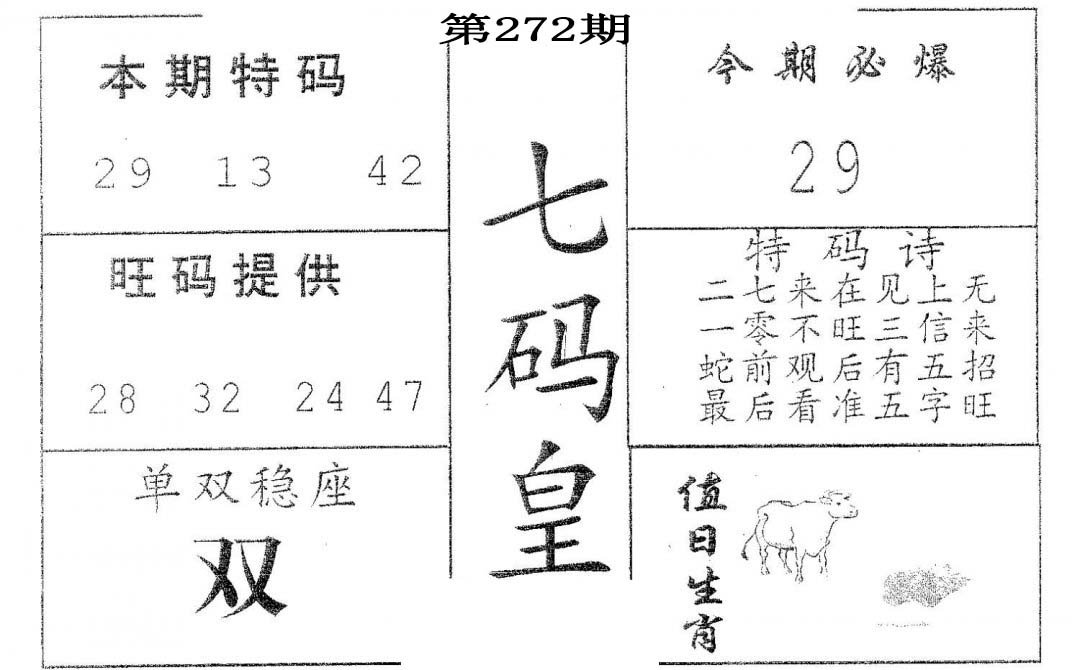 第272期
本期特码
29 13 42
旺码提供
28 32 24 47
单双稳座
双
七码皇
今期必爆
29
特码诗
二七来在见上无
一零不旺三信来
蛇前观后有五招
最后看准五字旺
值日生肖